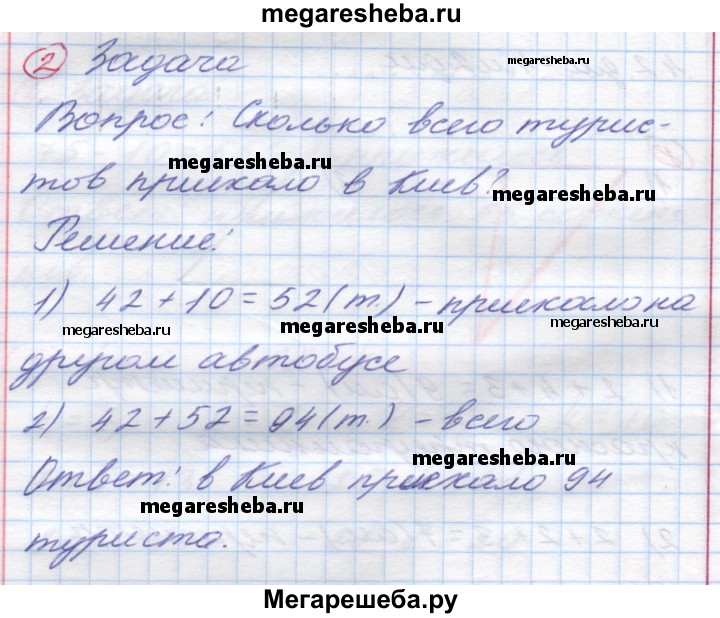 megaresheba.ru
2 Задача
megaresheba.ru
Вопрос: Сколько всего турис-
megaresheba.ru
тов приехало в Киев?
megaresheba.ru
Решение:
1) 42 + 10 = 52 (т.) - приехало на
megaresheba.ru megaresheba.ru megaresheba.ru
другом автобусе
2) 42 + 52 = 94 (т.) - всего
megaresheba.ru
Ответ: в Киев приехало 94
megaresheba.ru
туриста.
Мегарешеба.ру